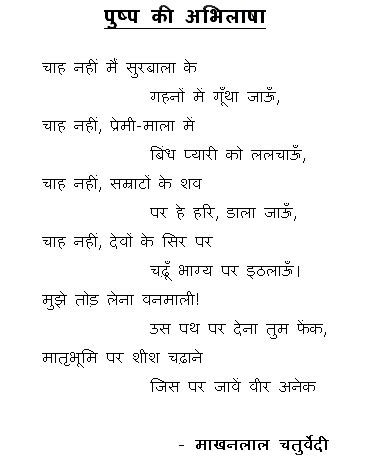 पुष्प की अभिलाषा
चाह नहीं मैं सुरबाला के
गहनों में गूँथा जाऊँ,
चाह नहीं, प्रेमी-माला में
बिंध प्यारी को ललचाऊँ,
चाह नहीं, सम्राटों के शव
पर हे हरि, डाला जाऊँ,
चाह नहीं, देवों के सिर पर
चढ़ूँ भाग्य पर इठलाऊँ।
मुझे तोड़ लेना वनमाली!
उस पथ पर देना तुम फेंक,
मातृभूमि पर शीश चढ़ाने
जिस पर जायें वीर अनेक
- माखनलाल चतुर्वेदी